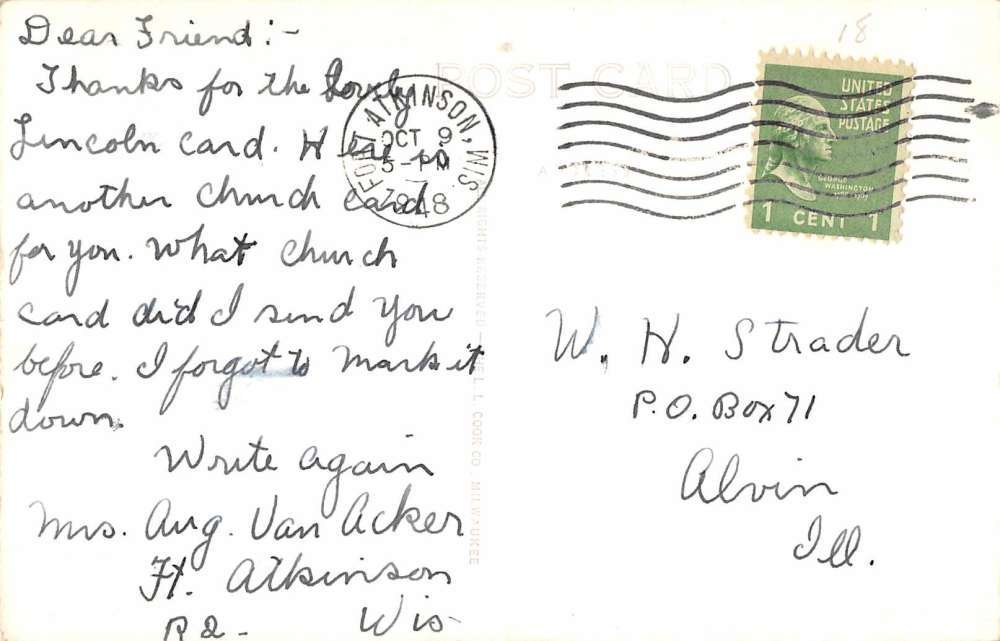 Dear Friend:-
Thanks for the lovely
Lincoln card. Here is
another church card
for you. What church
card did I send you
before. I forgot to mark it
down.
Write again
Mrs. Aug. Van Acker
Ft. Atkinson
R2- Wis-
POST CARD
FORT ATKINSON, WIS.
OCT 9
5 - PM
1948
18
UNITED
STATES
POSTAGE
GEORGE
WASHINGTON
1 CENT 1
W. H. Strader
P.O. Box 71
Alvin
Ill.
L. L. COOK CO., MILWAUKEE